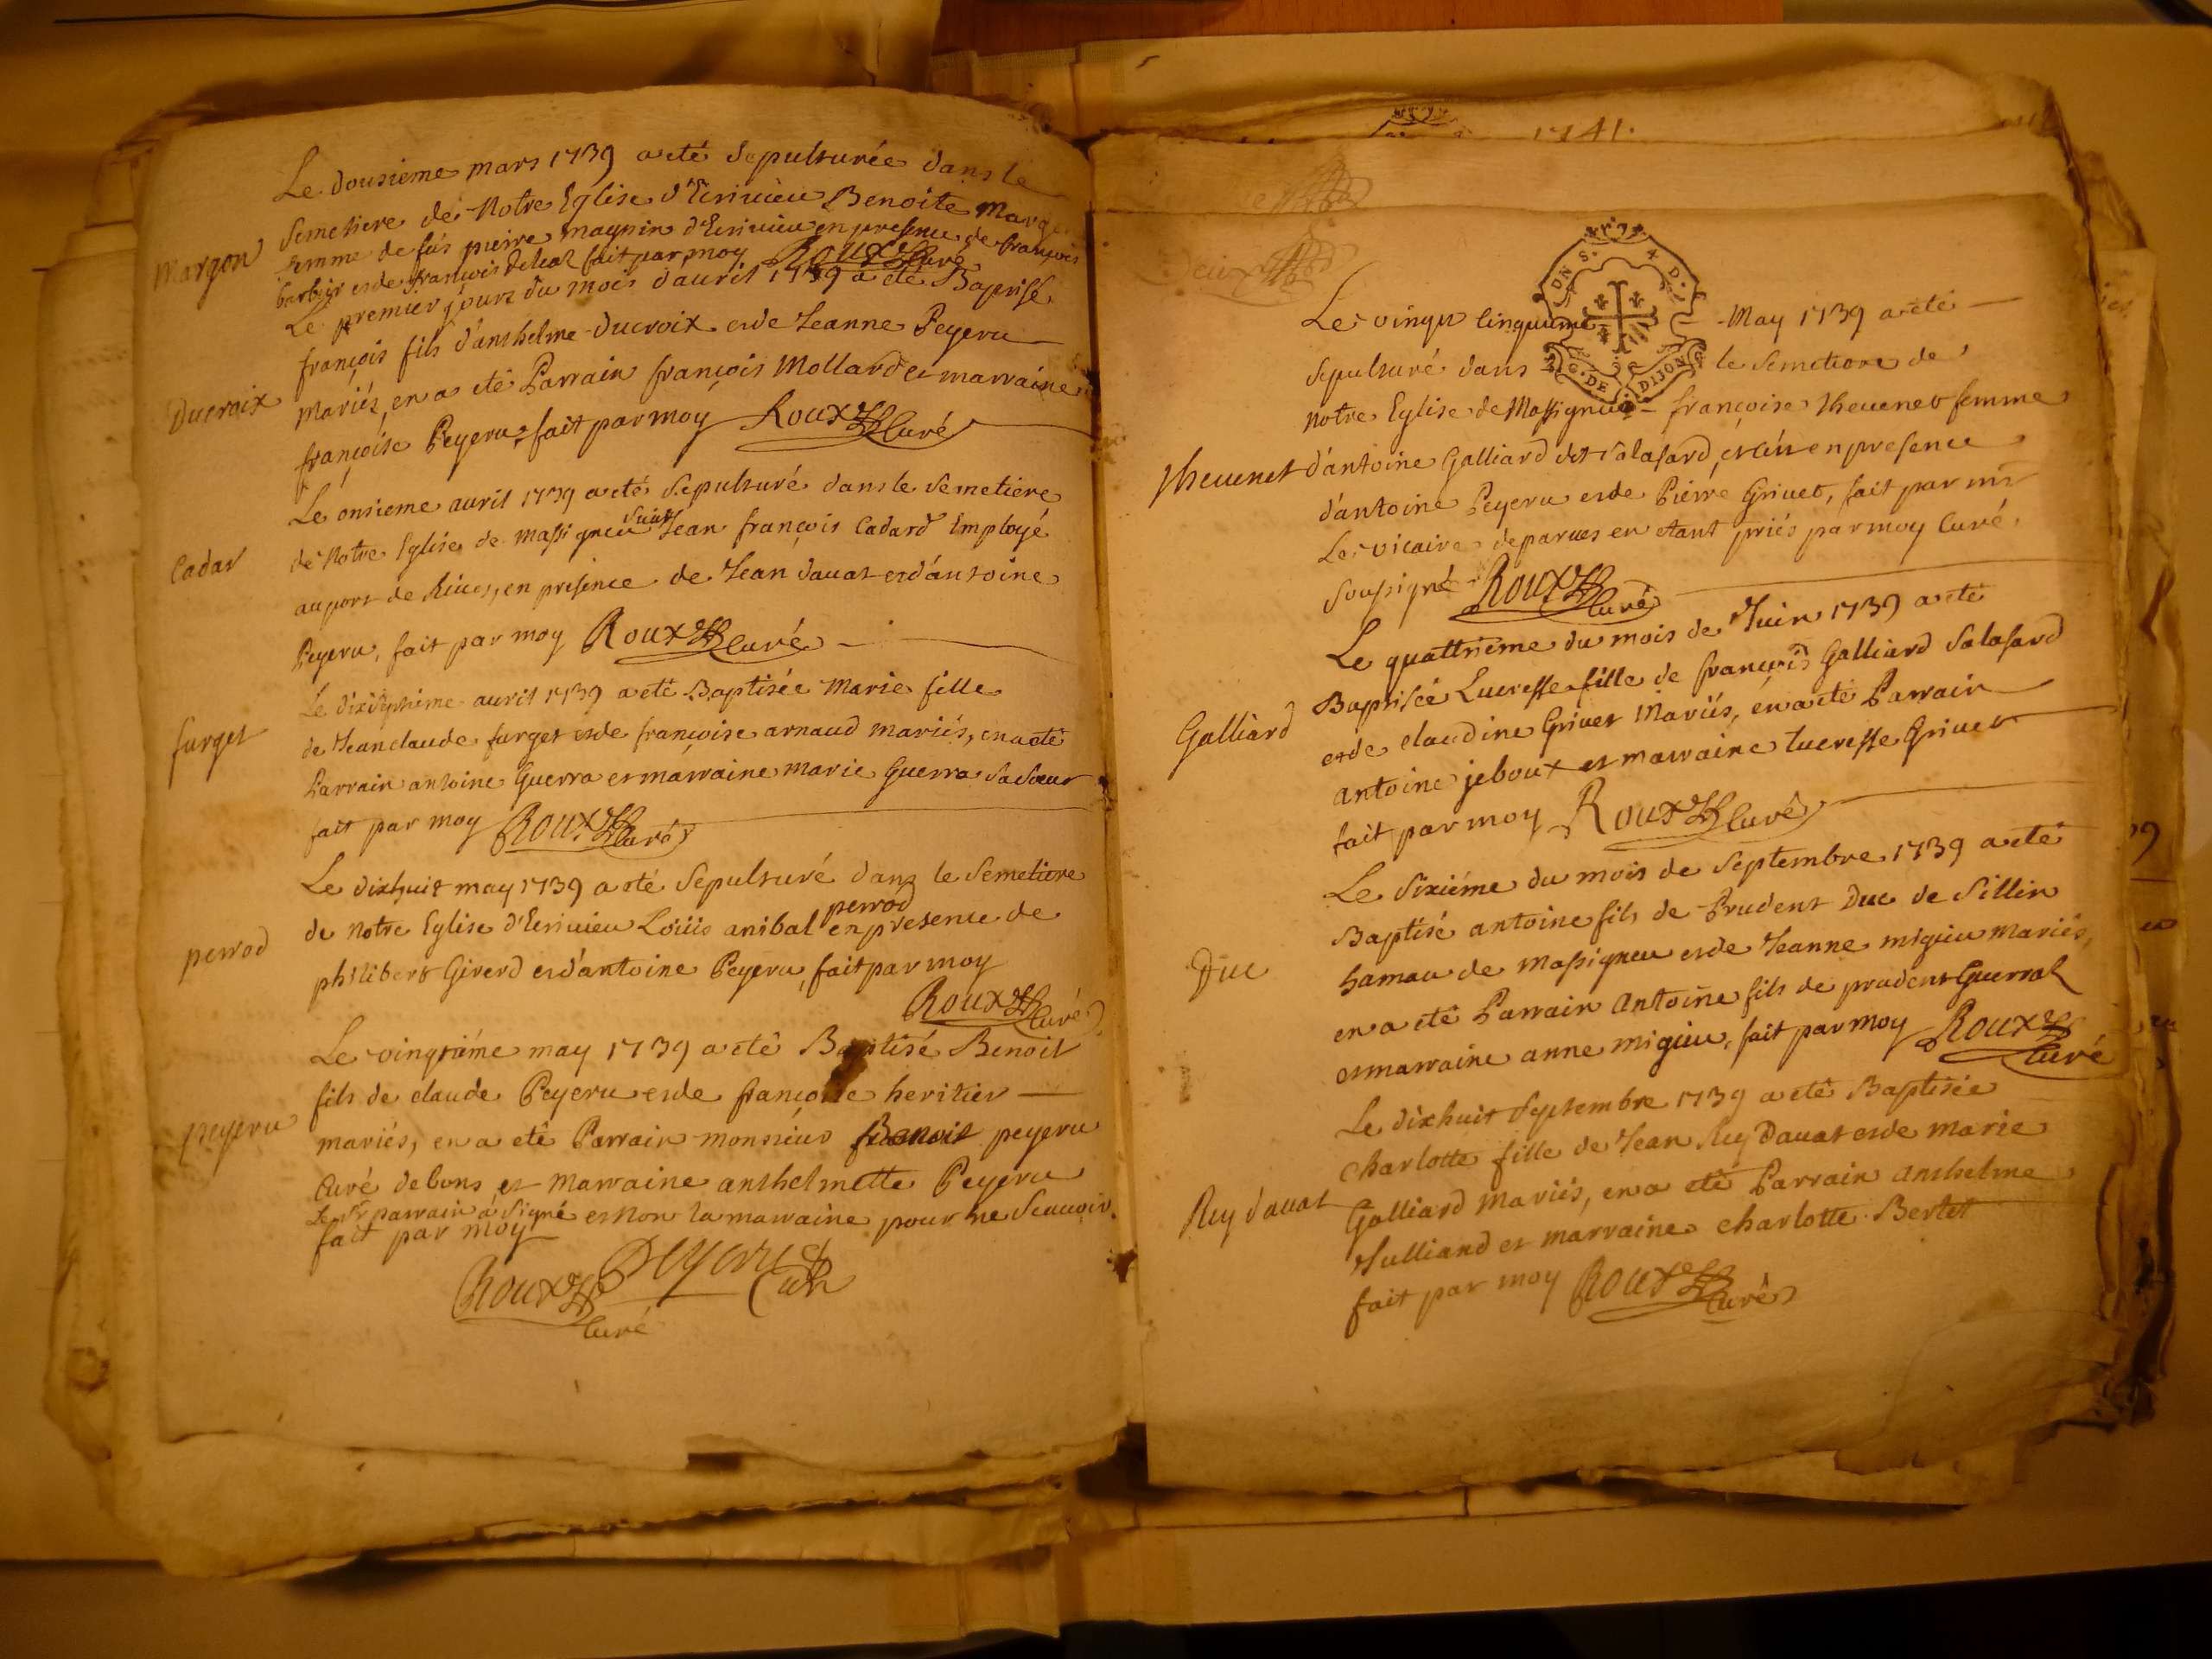 Le dousieme mars 1739 a eté sepulturée dans le
semetiere de Notre Eglise d'Ecrivieu Benoite Margo
Margon
femme de fût pierre magnin d'Ecrivieu en presence de françois
barbier et de françois fait par moy Roux Curé
Le premier jourz du mois d'auril 1739 a eté Baptisé
françois fils d'anthelme ducroix et de Jeanne Peyeru
Ducroix
mariés, en a eté Parrain françois Mollard et marraine
françoise Peyeru, fait par moy Roux Curé
Le onsieme auril 1739 a eté sepulturé dans le semetiere
de Notre Eglise de Massignieu Jean françois Cadard Employé
Cadar
au port de Rives, en presence de Jean davat et d'antoine
Peyeru, fait par moy Roux Curé
Le dixseptieme auril 1739 a eté Baptisée Marie fille
de Jean claude furget et de françoise arnaud mariés, en a eté
furget
Parrain antoine Guerra et marraine marie Guerra sa sœur
fait par moy Roux Curé
Le dixhuit may 1739 a eté sepulturé dans le semetiere
de Notre Eglise d'Ecrivieu Loüis anibal perrod en presence de
perrod
philibert Girerd et d'antoine Peyeru, fait par moy
Roux Curé
Le vingtième may 1739 a eté Baptisé Benoit
fils de claude Peyeru et de françoise heritier
peyeru
mariés, en a eté Parrain monsieur Benoit peyeru
Curé de bons et Marraine anthelmette Peyeru
Le Sr parrain a signé et Non la marraine pour ne sçavoir.
fait par moy
Roux Curé
Peyeru
1741.
DN S. X D.
G. DE DIJON
Le vingt cinquieme May 1739 a eté
sepulturé dans le semetiere de
notre Eglise de Massignieu françoise thevenet femme
thevenet
d'antoine Galliard dit salafard, et en presence
d'antoine Peyeru et de Pierre Grivet, fait par mr
Le vicaire de parves en etant priés par moy Curé
soussigné Roux Curé
Le quattrieme du mois de Juin 1739 a eté
Baptisée Lucresse fille de françois Galliard Salafard
Galliard
et de claudine Grivet Mariés, en a eté Parrain
antoine jeboux et marraine lucresse Grivet
fait par moy Roux Curé
Le sixiéme du mois de septembre 1739 a eté
Baptisé antoine fils de Prudent Duc de Sillin
Duc
hamau de Massigneu et de Jeanne migieu mariés,
en a eté Parrain Antoine fils de prudent Guerraz
et marraine anne migieu, fait par moy Roux Curé
Le dixhuit septembre 1739 a eté Baptisée
Charlotte fille de Jean Ruy davat et de marie
Ruy davat
Galliard mariés, en a eté Parrain anthelme
Julliand et marraine charlotte Bertet
fait par moy Roux Curé